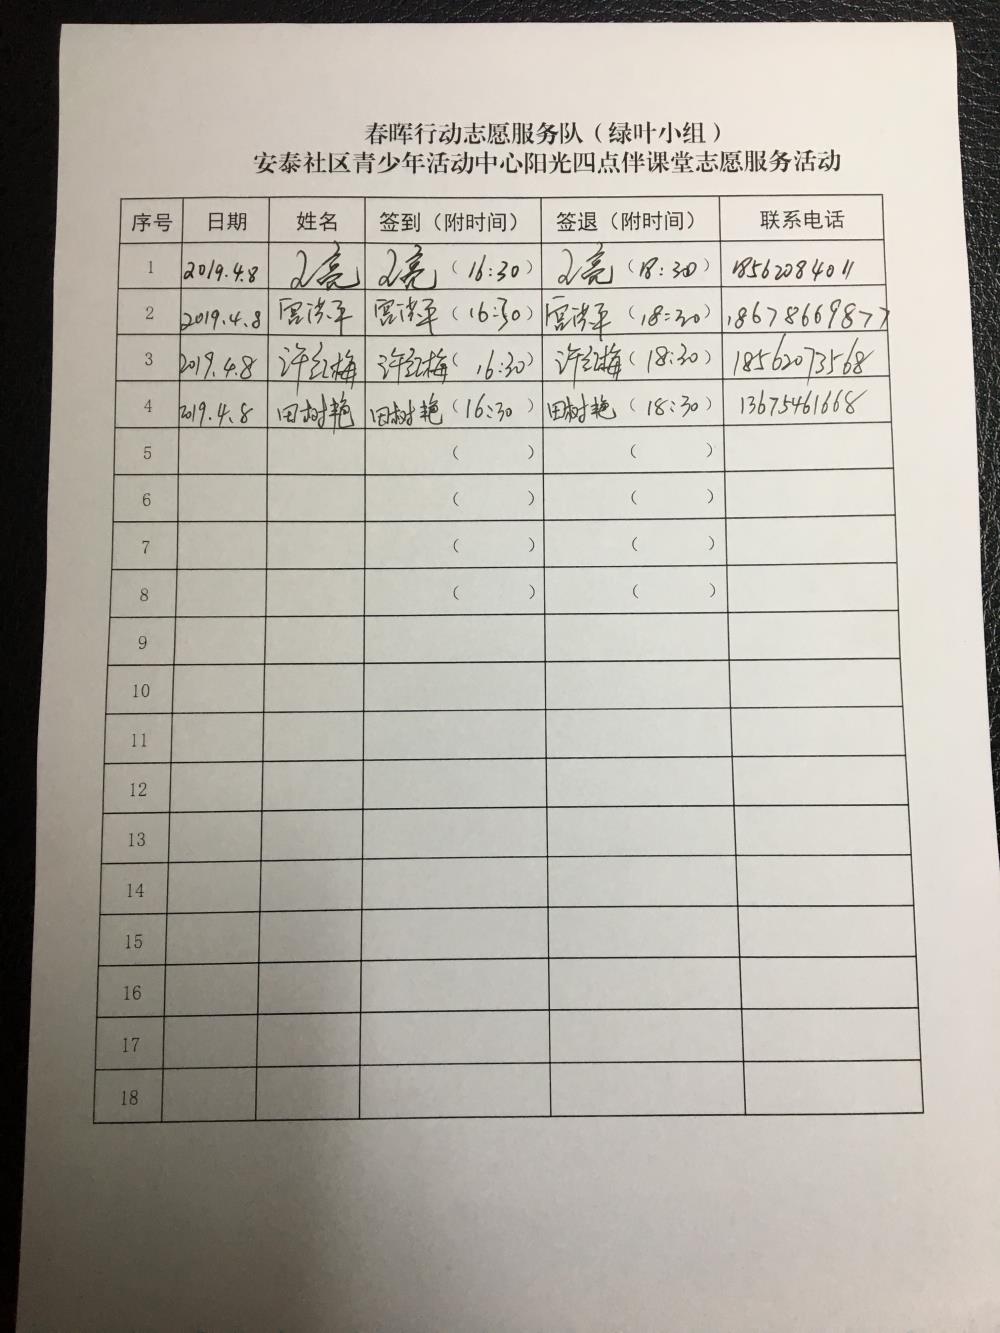 春晖行动志愿服务队（绿叶小组）
安泰社区青少年活动中心阳光四点伴课堂志愿服务活动
序号 日期 姓名 签到（附时间） 签退（附时间） 联系电话
1 2019.4.8 亮 亮（16:30） 亮（18:30） 18562084011
2 2019.4.8 宫洪平 宫洪平（16:30） 宫洪平（18:30） 18678669877
3 2019.4.8 许红梅 许红梅（16:30） 许红梅（18:30） 18562073568
4 2019.4.8 田树艳 田树艳（16:30） 田树艳（18:30） 13675461668
5 （ ） （ ）
6 （ ） （ ）
7 （ ） （ ）
8 （ ） （ ）
9
10
11
12
13
14
15
16
17
18